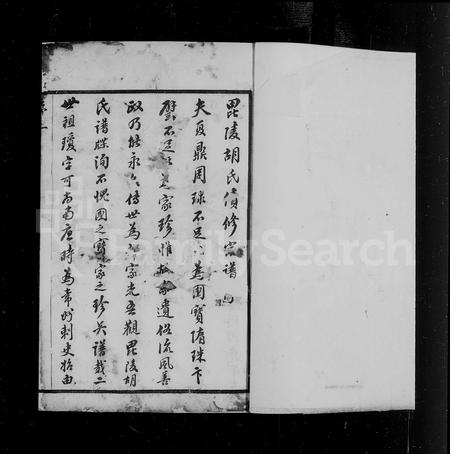 毘陵胡氏續修宗譜
夫夏鼎周球不足為國寶隋珠卞
璧不足 家珍惟 遺俗流風善
政乃能永久傳世為 家光吾觀毘陵胡
氏譜牒洵不愧國之寶家之珍矣譜載二
世祖瓊字可尚南唐時為常州刺史始由
FamilySearch